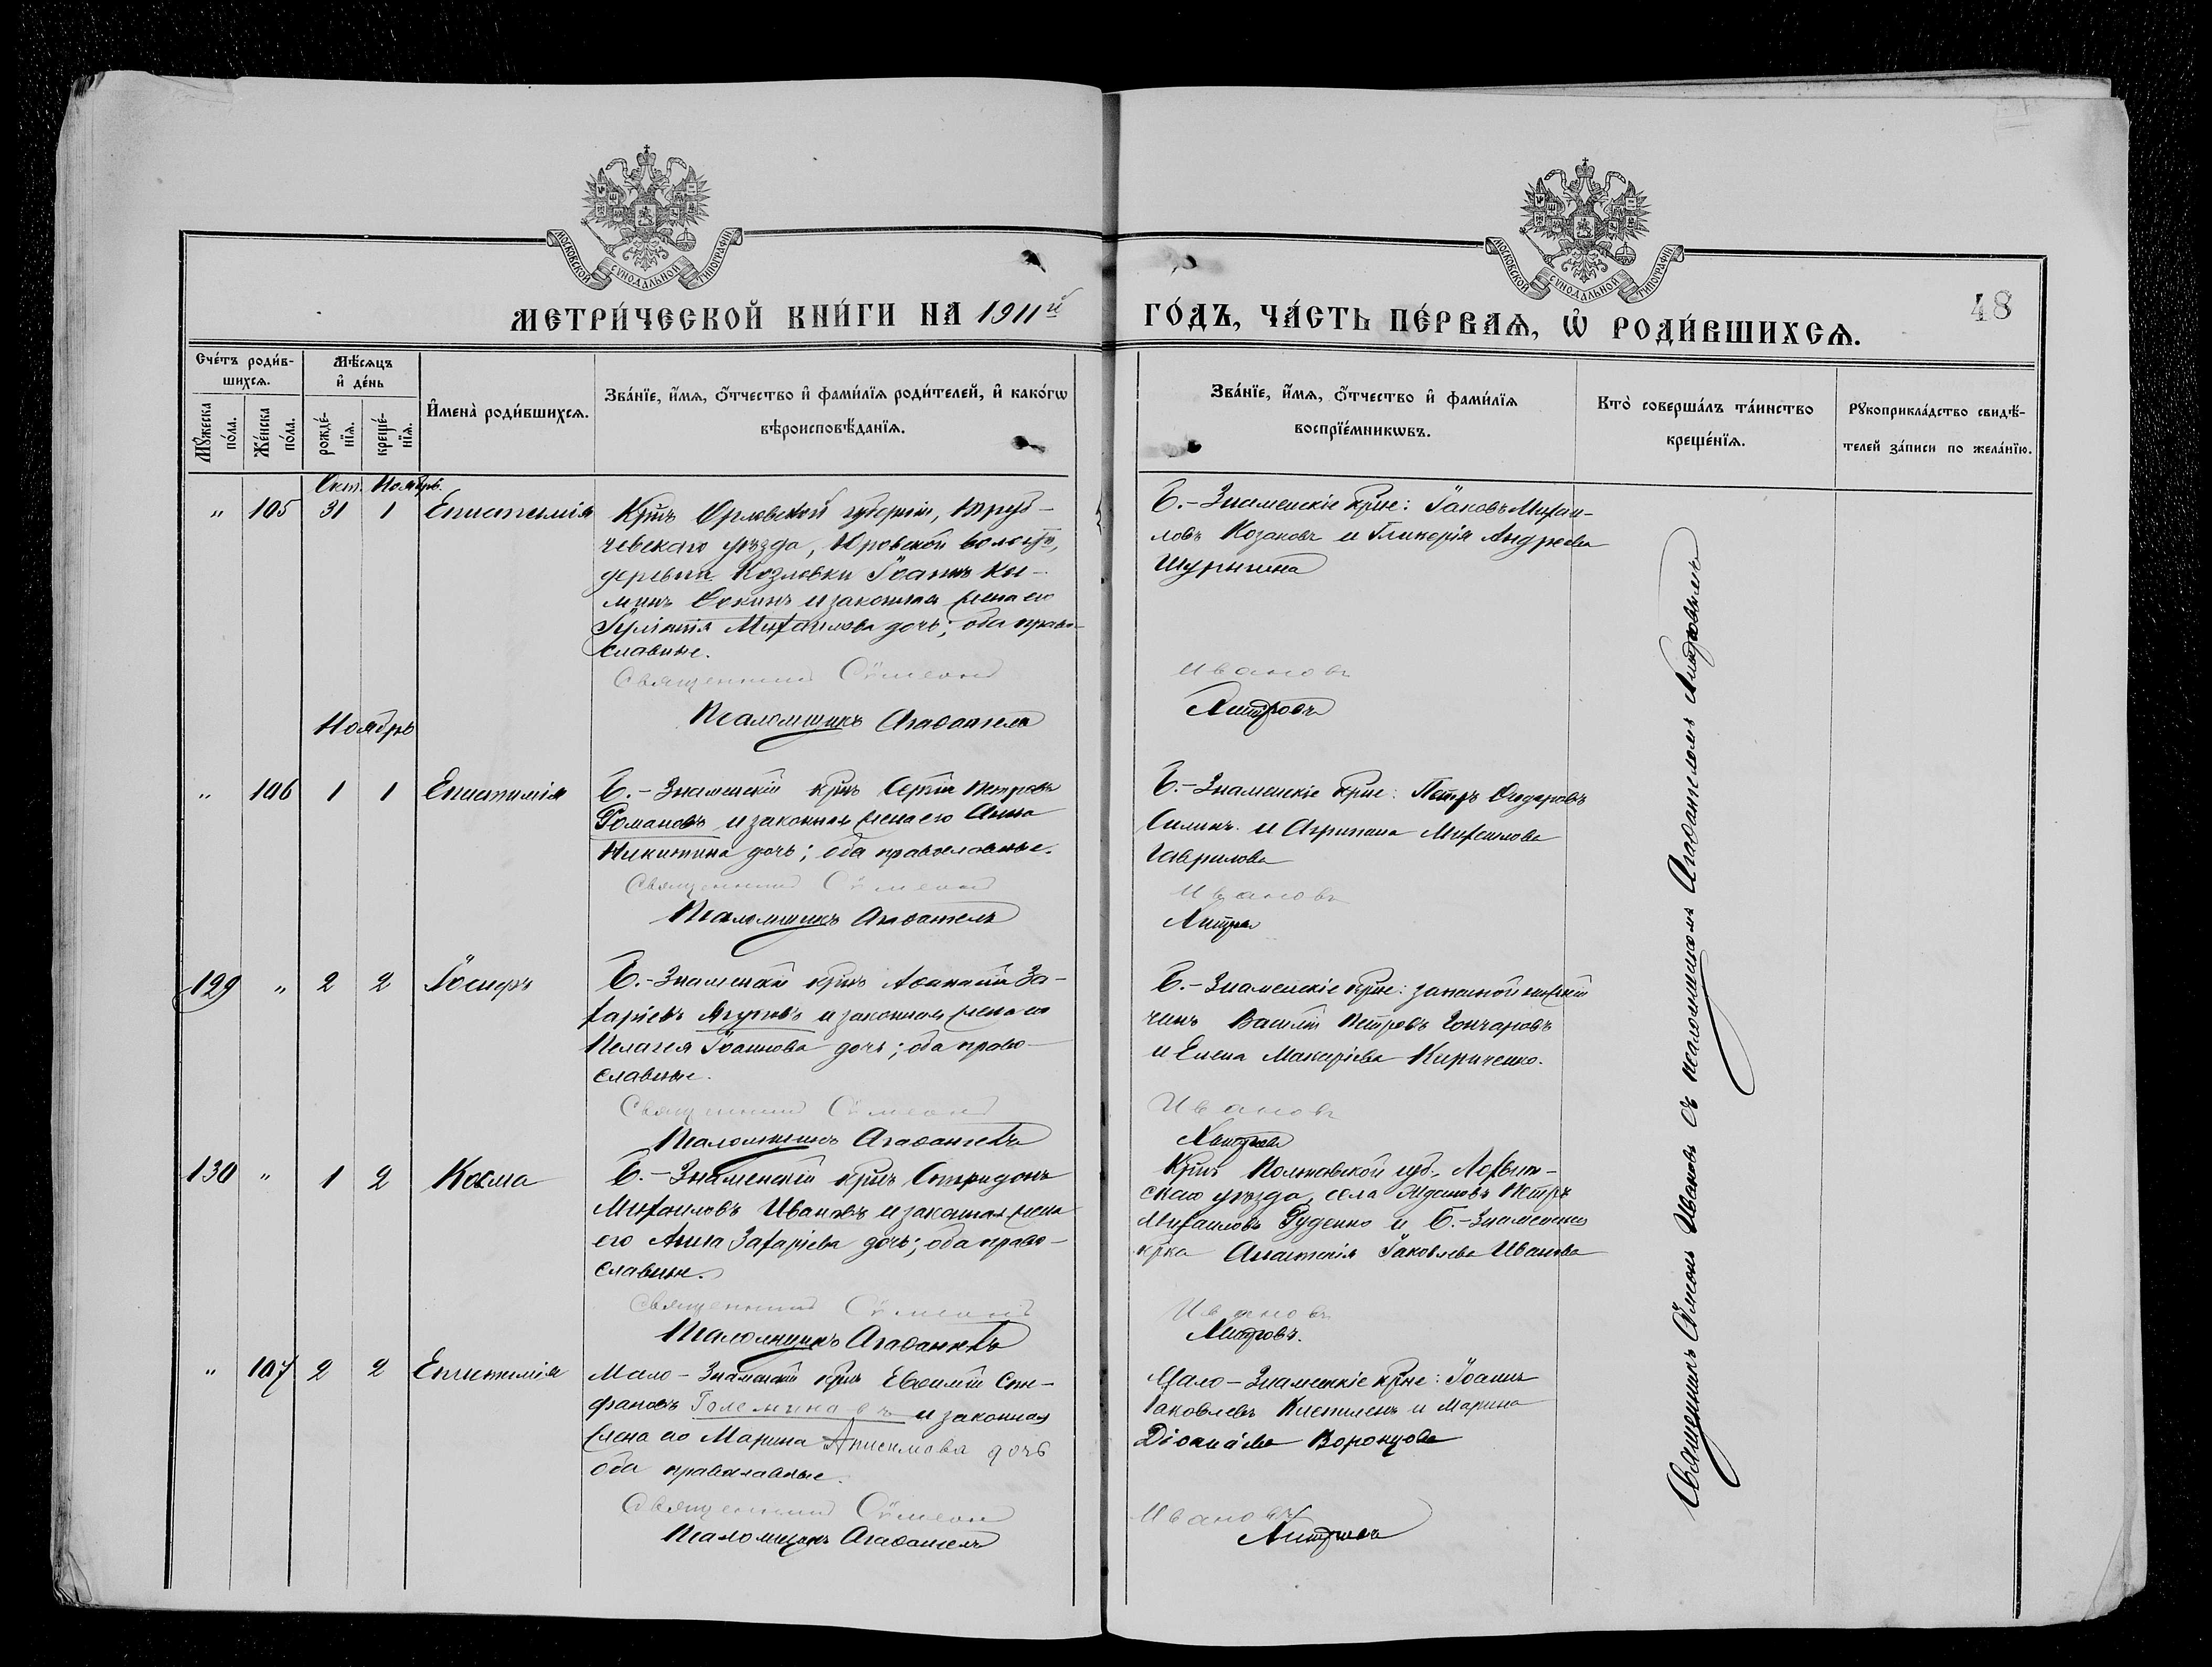 МОСКОВСКОЙ СѴНОДАЛЬНОЙ ТИПОГРАФІИ
МОСКОВСКОЙ СѴНОДАЛЬНОЙ ТИПОГРАФІИ
МЕТРИ́ЧЕСКОЙ КНИ́ГИ НА 1911й ГО́ДЪ, ЧА́СТЬ ПЕ́РВАѦ, Ѽ РОДИ́ВШИХСѦ.
48
Сче́тъ роди́в-
шихсѧ.
Мꙋ́жеска
по́ла.
Же́нска
по́ла.
Мѣ́сѧцъ
и҆ де́нь
рожде́-
нїѧ.
креще́-
нїѧ.
И҆мена̀ роди́вшихсѧ.
Зва́нїе, и҆́мѧ, ѻ҆́тчество и҆ фами́лїѧ роди́телей, и҆ како́гѡ
вѣроисповѣ́данїѧ.
Зва́нїе, и҆́мѧ, ѻ҆́тчество и҆ фами́лїѧ
воспрїе́мникѡвъ.
Кто̀ соверша́лъ та́инство
креще́нїѧ.
Рꙋкоприкла́дство свидѣ́-
телей за́писи по жела́нїю.
Окт. Ноябрь.
„ 105 31 1 Епистимія
Крнъ Орловской губерніи, Труб-
чевскаго уѣзда, Юровской волости,
деревни Козловки Іоаннъ
и законная жена его
Михаилова дочь; оба право-
славные.
Священникъ Сѵмеонъ
Псаломщикъ Агаѳангелъ
Б.-Знаменскіе крне: Іаковъ Михаи-
ловъ Козаковъ и Гликерія Андреева
Шурыгина
Ивановъ
Ноябрь
„ 106 1 1 Епистимія
Б.-Знаменскій крнъ Сергій Петровъ
Романовъ и законная жена его Анна
Никитина дочь; оба православные.
Священникъ Сѵмеонъ
Псаломщикъ Агаѳангелъ
Б.-Знаменскіе крне: Петръ Сидоровъ
Силинъ и Агрипина Михаилова
Гаврилова
Ивановъ
129 „ 2 2 Іосифъ
Б.-Знаменскій крнъ Аѳанасій За-
харіевъ и законная жена его
Пелагея Іоаннова дочь; оба право-
славные.
Священникъ Сѵмеонъ
Псаломщикъ Агаѳангелъ
Б.-Знаменскіе крне: запасной нижній
чинъ Василій Петровъ Гончаровъ
и Елена Макаріева Кириченко.
Ивановъ
130 „ 1 2 Косма
Б.-Знаменскій крнъ Спиридонъ
Михаиловъ Ивановъ и законная жена
его Анна Захаріева дочь; оба право-
славные.
Священникъ Сѵмеонъ
Псаломщикъ Агаѳангелъ
Крнъ Полтавской губ., Лохвиц-
скаго уѣзда, села Петръ
Михаиловъ Руденко и Б.-Знаменская
крка Анастасія Іаковлева Иванова
Ивановъ
„ 107 2 2 Епистимія
Мало-Знаменскій крнъ Евѳимій Сте-
фановъ и законная
жена его Марина Анисимова дочь
оба православные.
Священникъ Сѵмеонъ
Псаломщикъ Агаѳангелъ
Мало-Знаменскіе крне: Іоаннъ
Іаковлевъ и Марина
Воронцова
Ивановъ
Священникъ Сѵмеонъ Ивановъ съ псаломщикомъ Агаѳангеломъ